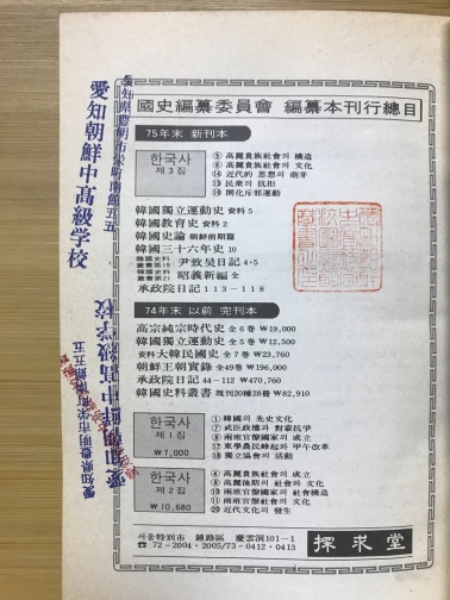 國史編纂委員會 編纂本刊行總目
75年末 新刊本
한국사
제 3 집
⑤ 高麗貴族社會의 構造
⑥ 高麗貴族社會의 文化
⑭ 近代的 思想의 萌芽
⑮ 民衆의 抗拒
⑯ 開化斥邪運動
韓國獨立運動史 資料 5
韓國敎育史 資料 2
韓國史論 朝鮮前期篇
韓國三十六年史 10
韓國史料叢書第19 尹致昊日記 4·5
韓國史料叢書第21 昭義新編 全
承政院日記 113-118
74年末 以前 完刊本
高宗純宗時代史 全 6 卷 ₩19,000
韓國獨立運動史 全 5 卷 ₩12,500
資料大韓民國史 全 7 卷 ₩23,760
朝鮮王朝實錄 全49卷 ₩196,000
承政院日記 44-112 ₩470,760
韓國史料叢書 既刊20種28冊 ₩82,910
한국사
제 1 집
₩7,000
① 韓國의 先史文化
⑦ 武臣政權과 對蒙抗爭
⑨ 兩班官僚國家의 成立
⑰ 東學農民蜂起와 甲午改革
⑱ 獨立協會의 活動
한국사
제 2 집
₩10,680
④ 高麗貴族社會의 成立
⑧ 高麗後期의 社會와 文化
⑩ 兩班官僚國家의 社會構造
⑪ 兩班官僚社會의 文化
⑳ 近代文化의 發生
서울特別市 鍾路區 慶雲洞101-1
☎ 72-2004·2005/73-0412·0413
探求堂
愛知県豊明市栄町南館五五
愛知朝鮮中高級学校
愛知県豊明市栄町南館五五
愛知朝鮮中高級学校